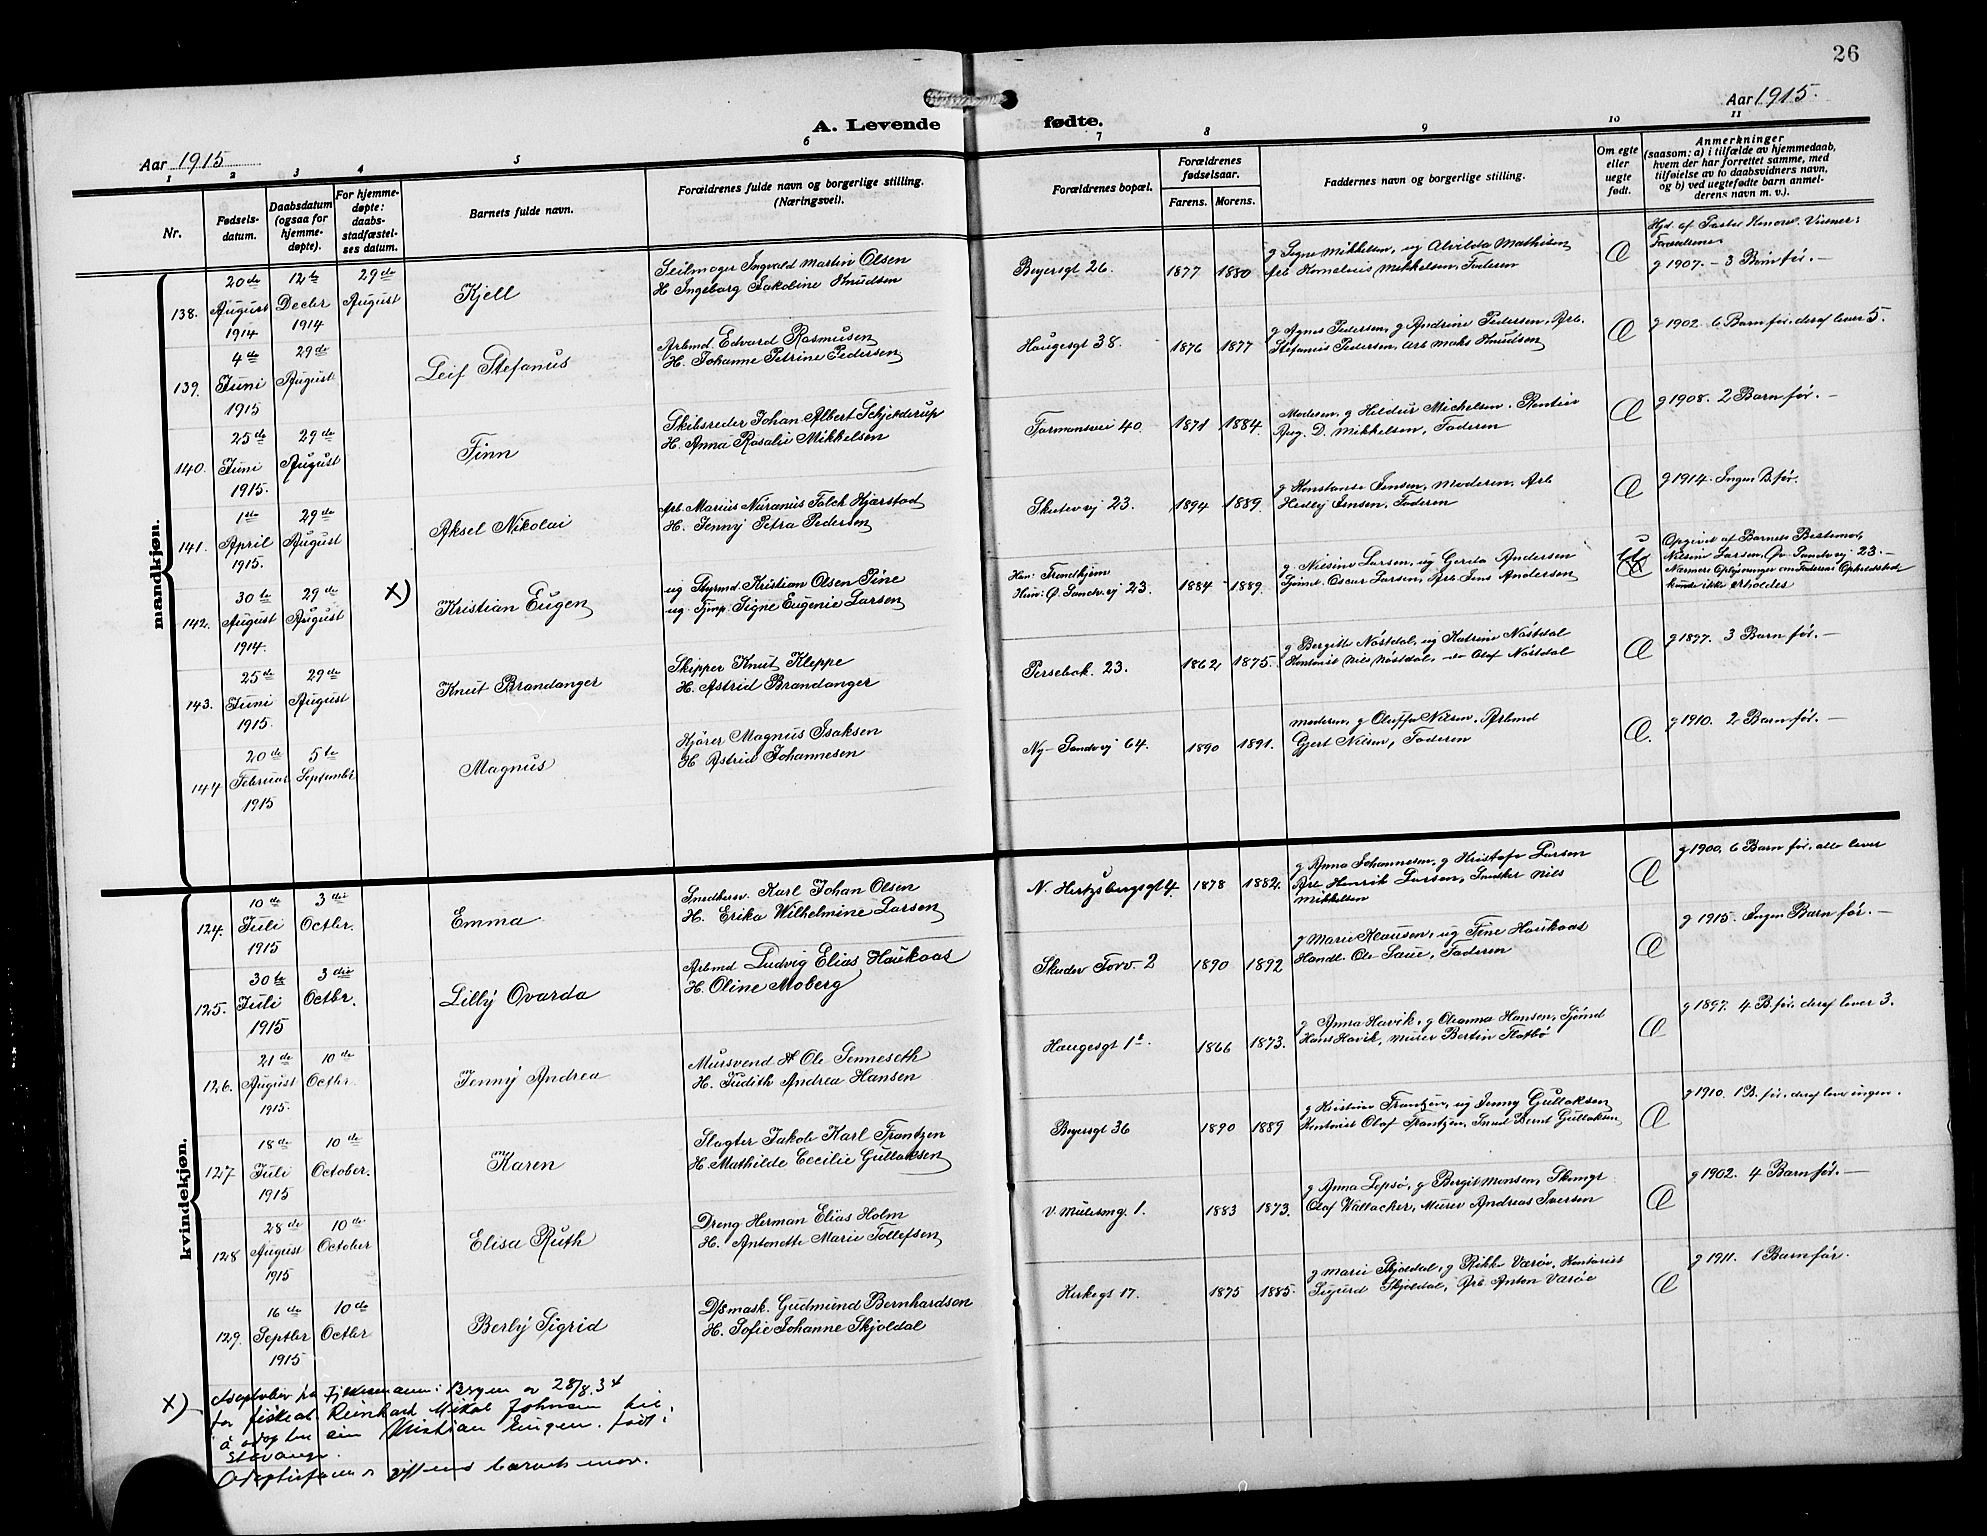 26
Aar 1915.
A. Levende fødte.
Aar 1915
1 2 3 4 5 6 7 8 9 10 11
Nr.
Fødsels-
datum.
Daabsdatum
(ogsaa for
hjemme-
døpte).
For hjemme-
døpte:
daabs-
stadfæstel-
ses datum.
Barnets fulde navn.
Forældrenes fulde navn og borgerlige stilling.
(Næringsvei).
Forældrenes bopæl.
Forældrenes
fødselsaar.
Farens. Morens.
Faddernes navn og borgerlige stilling.
Om egte
eller
uegte
født.
Anmerkninger
(saasom: a) i tilfælde av hjemmedaab,
hvem der har forrettet samme, med
tilføielse av to daabsvidners navn,
og b) ved uegtefødte barn anmel-
derens navn m. v.).
mandkjøn.
138. 20de August 1914 12te Decbr 1914 29de August
Kjell
Seilmager Ingvald Martin Olsen
H. Ingeborg Jakoline Knudsen
Beyersgt 26. 1877 1880
g Signe Mikkelsen, ug Alvilda Mathisen
Arb Kornelius Mikkelsen, Faderen
Æ
Hjd. af Pastor Konow. Visner:
Forældrene
g 1907. - 3 Børn før. -
139. 4de Juni 1915 29de August
Leif Stefanus
Arbmd Edvard Rasmusen
H. Johanne Petrine Pedersen
Haugesgt 38. 1876 1877
g Agnes Pedersen, g Andrine Pedersen, Arb.
Stefanius Pedersen, Arb Maks Knudsen
Æ
g 1902. 6 Barn før, deraf lever 5.
140. 25de Juni 1915. 29de August
Finn
Skibsreder Johan Albert Schjelderup
H. Anna Rosalie Mikkelsen
Formansvei 40 1871 1884.
Moderen, g Hildur Michelsen. Rentier
Aug. D. Mikkelsen, Faderen
Æ
g 1908. 2 Barn før. -
141. 1ste April 1915. 29de August
Aksel Nikolai
Arb. Marius Nuranus Falck Hjarstad
H. Jenny Petra Pedersen
Skutevj 23. 1894 1889.
g Konstanse Jensen, Moderen, Arb
Hedley Jensen, Faderen
Æ
g 1914. Ingen B. før.
142. 30te August 1914. 29de August
X)
Kristian Eugen
ug Styrmd Kristian Olsen Tine
ug. Tjmp. Signe Eugenie Larsen
Han: Trondhjem
Hun: Ø. Sandvj 23. 1884 1889.
g. Nielsine Larsen, ug Gerda Andersen
Sjømd. Oscar Larsen, Arb. Jens Andersen
Opgivet af Barnets Bestemor,
Nielsine Larsen, Øv. Sandvej 23. -
Nærmere Oplysninger om Faderens Opholdssted
kunde ikke erholdes
143. 25de Juni 1915. 29de August
Knut Brandanger
Skipper Knut Kleppe
H. Astrid Brandanger
Persebak. 23. 1862 1875.
g Bergitte Nøstdal, ug Katrine Nøstdal
Kontorist Nils Nøstdal, do Olaf Nøstdal
Æ
g 1897. 3 Barn før. -
144 20de Februar 1915 5te Septembr
Magnus
Kjører Magnus Isaksen
H Astrid Johannesen
Ny-Sandvj 64. 1890 1891.
Moderen, g Oluffa Nilsen, Arbmd
Gjert Nilsen, Faderen
Æ.
g 1910. 2 Barn før. -
kvindekjøn.
124. 10de Juli 1915 3die Octbr.
Emma
Karl Johan Olsen
H. Erika Wilhelmine Larsen
N. Hertzbergsgt 4. 1878 1882.
g Anna Johannesen, g Kristofa Larsen
Arb Henrik Larsen, Snedker Nils
Mikkelsen
Æ
g 1900. 6 Barn før, alle lever
125. 30te Juli 1915 3die Octbr.
Lilly Ovarda
Arbmd Ludvig Elias Haukaas
H. Oline Moberg
Skudev Torv. 2 1890 1892
g Marie Klausen, ug Tine Haukaas
Handl. Ole Saue, Faderen
Æ
g 1915. Ingen Barn før. -
126. 21de August 1915. 10de Octbr.
Jenny Andrea
Mursvend Ole Senneseth
H. Judith Andrea Hansen
Haugesgt 1a. 1866 1873.
g Anna Havik, g Oleanna Hansen, Sjømd
Hans Havik, Murer Bertin Flatbø
Æ
g 1897. 4 B. før, deraf lever 3.
127 18de Juli 1915 10de October.
Karen
Slagter Jakob Karl Frantzen
H. Mathilde Cecilie Gullaksen
Beyersgt 36 1890 1889
g Kristine Frantzen, ug Jenny Gullaksen
Kontorist Olaf Frantzen, Smed Bernt Gullaksen
Æ
g 1910. 1 B. før, deraf lever ingen.
128 28de August 1915 10de October
Elisa Ruth
Dreng Herman Elias Holm
H. Antonette Marie Tollefsen
V. Mulesmg. 1. 1883 1873.
g Anna Lepsø, g Bergit Monsen,
Olaf Wallacher, Murer Andreas Iversen
Æ
g 1902. 4 Barn før. -
129. 16de Septbr 1915 10de Octbr
Berly Sigrid
D/smask. Gudmund Bernhardsen
H. Sofie Johanne Skjoldal
Kirkegt 17. 1875 1885.
g Marie Skjoldal, g Rikke Værøe, Kontorist
Sigurd Skjoldal, Arb. Anton Værøe
Æ
g 1911. 1 Barn før.
X) Adoptivbev fra Fylkesmannen i Bergen av 28/8.34
for Reinhard Mikal Johnsen til
å adoptere Kristian Eugen, født i
Stavanger.
Adoptivfaren er gift med barnets mor.